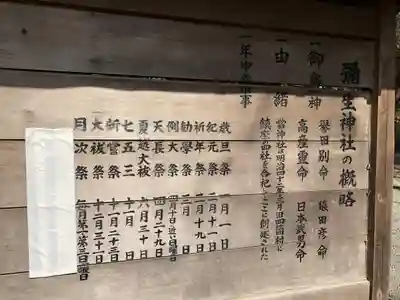 彌生神社の概略
一御祭神 誉田別命 猿田彦命
高産霊命 日本武尊命
一由緒 當神社は明治四十二年三月旧四箇村に
鎮座の四社を合祀しここに創建された
一年中の行事
歳旦祭 一月一日
紀元祭 二月十一日
祈年祭 二月十九日
勧學祭 三月
例大祭 四月十日に近い日曜日
天長祭 四月二十九日
夏越大祓 六月三十日
七五三 十一月十日
新嘗祭 十一月二十三日
大祓祭 十二月三十一日
月次祭 毎月第一第三日曜日